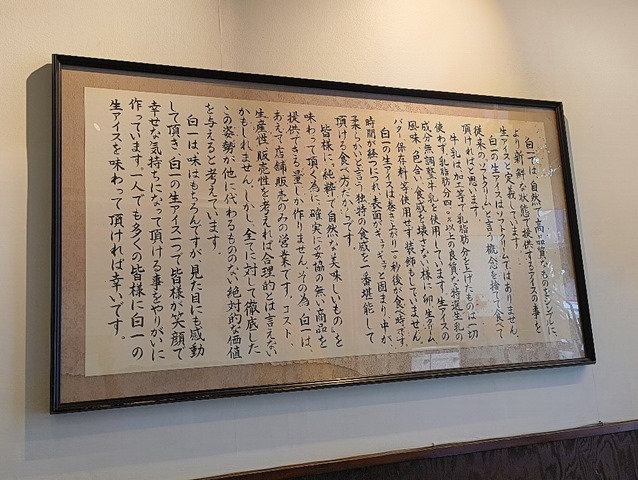 白一では、自然で高品質なものをシンプルに、
より新鮮な状態で提供するアイスの事を
生アイスと定義しています。
白一の生アイスはソフトクリームではありません。
従来の「ソフトクリーム」と言う概念を捨てて食べて
頂ければと思います。
牛乳は加工等で乳脂肪分を上げたものは一切
使わず、乳脂肪分四・〇%以上の良質な特選生乳の
成分無調整牛乳を使用しています。生アイスの
風味、色合い、食感を壊さない様に卵、生クリーム、
バター、保存料等使用せず装飾もしていません。
白一の生アイスは巻き上がり一〇秒後が食べ時です。
時間が経つにつれ、表面がギュギュっと固まり、中が
柔らかいと言う独特の食感を一番堪能して
頂ける食べ方だからです。
皆様に、純粋で自然な美味しいものを
味わって頂く為に、確実に妥協の無い商品を
提供できる量しか作りません。その為、白一は、
あえて店舗販売のみの営業です。コスト、
生産性、販売性を考えれば合理的とは言えない
かもしれません。しかし、全てに対して徹底した
この姿勢が他に代わるもののない絶対的な価値
を与えると考えています。
白一は味はもちろんですが、見た目にも感動
して頂き、白一の生アイス一つで皆様が笑顔で
幸せな気持ちになって頂ける事をやりがいに
作っています。一人でも多くの皆様に白一の
生アイスを味わって頂ければ幸いです。